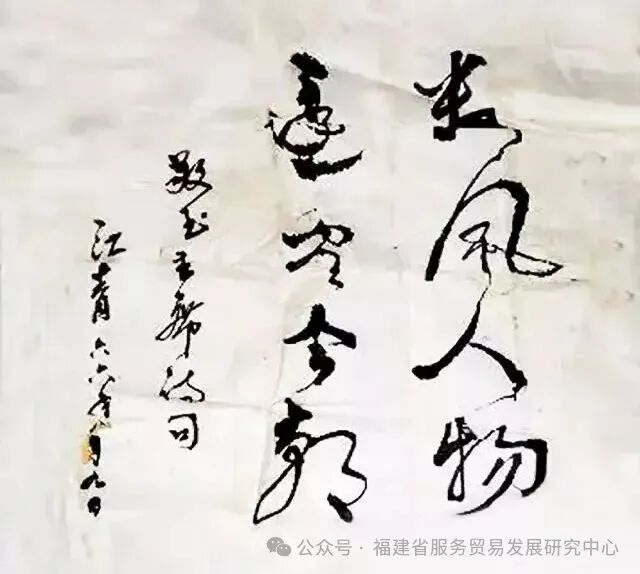 数风人物
還看今朝
敬书主席诗句
江青六六年八月九日
公众号·福建省服务贸易发展研究中心